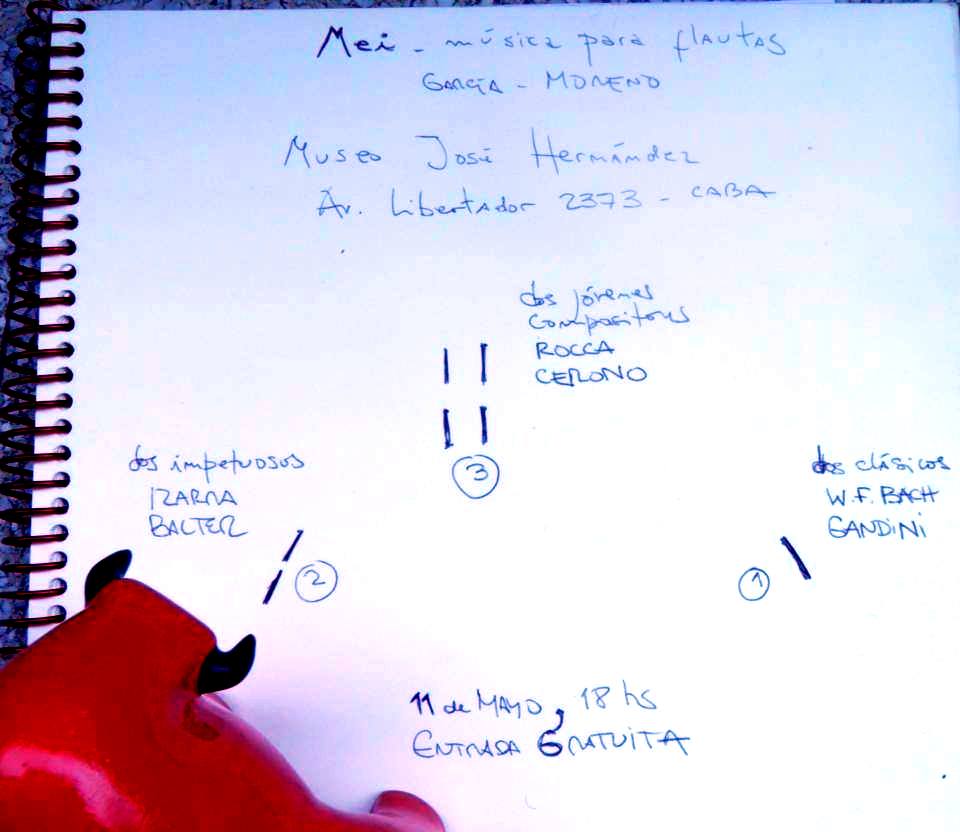 Mei - música para flautas
GARCÍA - MORENO
Museo José Hernández
Av. Libertador 2373 - CABA
dos jóvenes
compositores
ROCCA
CERONO
3
dos impetuosos
IZARRA
BALTER
2
dos clásicos
W.F. BACH
GANDINI
1
11 de MAYO, 18 hs
ENTRADA GRATUITA